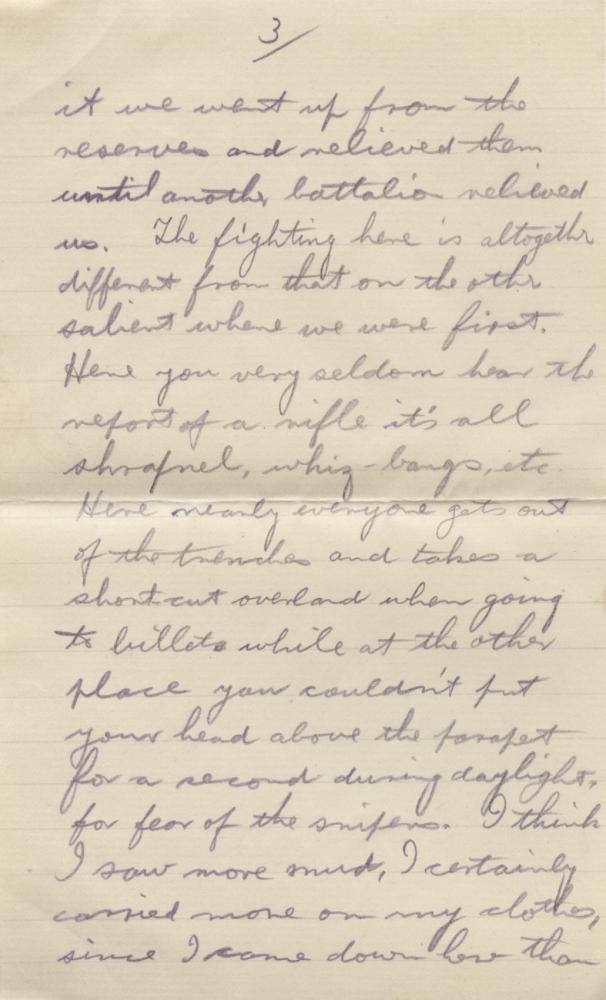 3/
it we went up from the
reserves and relieved them
until another battalion relieved
us. The fighting here is altogether
different from that on the other
salient where we were first.
Here you very seldom hear the
report of a rifle it's all
shrapnel, whiz-bangs, etc.
Here nearly everyone gets out
of the trenches and takes a
short-cut overland when going
to billets while at the other
place you couldn't put
your head above the parapet
for a second during daylight,
for fear of the snipers. I think
I saw more mud, I certainly
carried more on my clothes,
since I came down here than